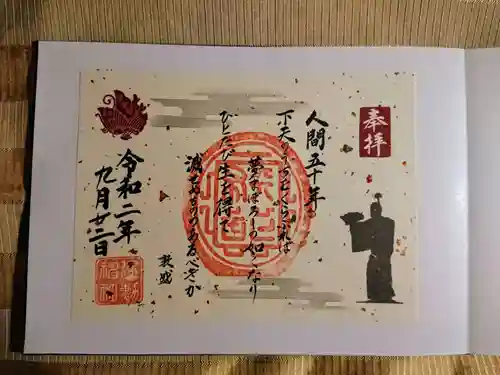 奉拝
人間五十年
下天のうちをくらぶれば
夢まぼろしの如くなり
ひとたび生を得て
滅せぬもののあるべきか
敦盛
令和二年
九月廿二日